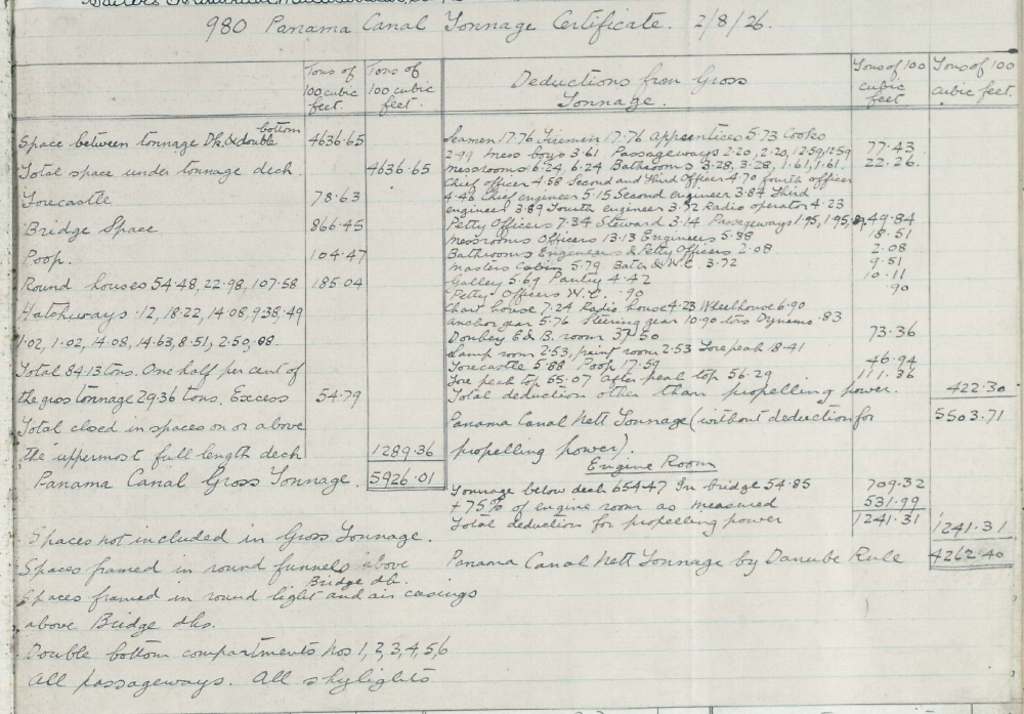 980 Panama Canal Tonnage Certificate. 2/8/26.
Tons of 100 cubic feet.
Tons of 100 cubic feet.
Deductions from Gross Tonnage.
Tons of 100 cubic feet
Tons of 100 cubic feet.
Space between tonnage Dk. & double bottom 4636.65
Total space under tonnage deck. 4636.65
Forecastle 78.63
Bridge Space 866.45
Poop. 104.47
Round houses 54.48, 22.98, 107.58 185.04
Hatchways .12, 18.22, 14.08, 9.38, .49
1.02, 1.02, 14.08, 14.63, 8.51, 2.50, .08.
Total 84.13 tons. One half per cent of
the gross tonnage 29.36 tons. Excess 54.79
Total closed in spaces on or above
the uppermost full length deck 1289.36
Panama Canal Gross Tonnage. 5926.01
Spaces not included in Gross Tonnage.
Spaces framed in round funnels above Bridge dk.
Spaces framed in round light and air casings
above Bridge dks.
Double bottom compartments Nos 1, 2, 3, 4, 5, 6
All passageways. All skylights
Seamen 17.76 Firemen 17.76 Apprentices 5.73 Cooks
2.99 Mess boys 3.61 Passageways 2.20, 2.20, 12.59, 12.59 77.43
Messrooms 6.24, 6.24 Bathrooms 3.28, 3.28, 1.61, 1.61. 22.26.
Chief officer 4.58 Second and Third Officer 4.70 fourth officer
4.46 Chief engineer 5.15 Second engineer 3.84 Third
engineer 3.89 Fourth engineer 3.52 Radio operator 4.23
Petty Officers 7.34 Steward 3.14 Passageways 1.95, 1.95, 49.84
Messrooms Officers 13.13 Engineers 5.38 18.51
Bathrooms Engineers & Petty Officers 2.08 2.08
Masters Cabin 5.79 Bath & W.C. 3.72 9.51
Galley 5.69 Pantry 4.42 10.11
Petty Officers W.C. .90 .90
Chart house 7.24 Radio house 4.23 Wheelhouse 6.90
Anchor gear 5.76 Steering gear 10.90 tons Dynamo .83
Donkey E & B. room 37.50 73.36
Lamp room 2.53, paint room 2.53 Forepeak 18.41
Forecastle 5.88 Poop 17.59 46.94
Fore peak top 55.07 After peak top 56.29 111.36
Total deduction other than propelling power. 422.30
Panama Canal Nett Tonnage (without deduction for 5503.71
propelling power).
Engine Room
Tonnage below deck 654.47 In bridge 54.85 709.32
+ 75% of engine room as measured 531.99
Total deduction for propelling power 1241.31 1241.31
Panama Canal Nett Tonnage by Danube Rule 4262.40